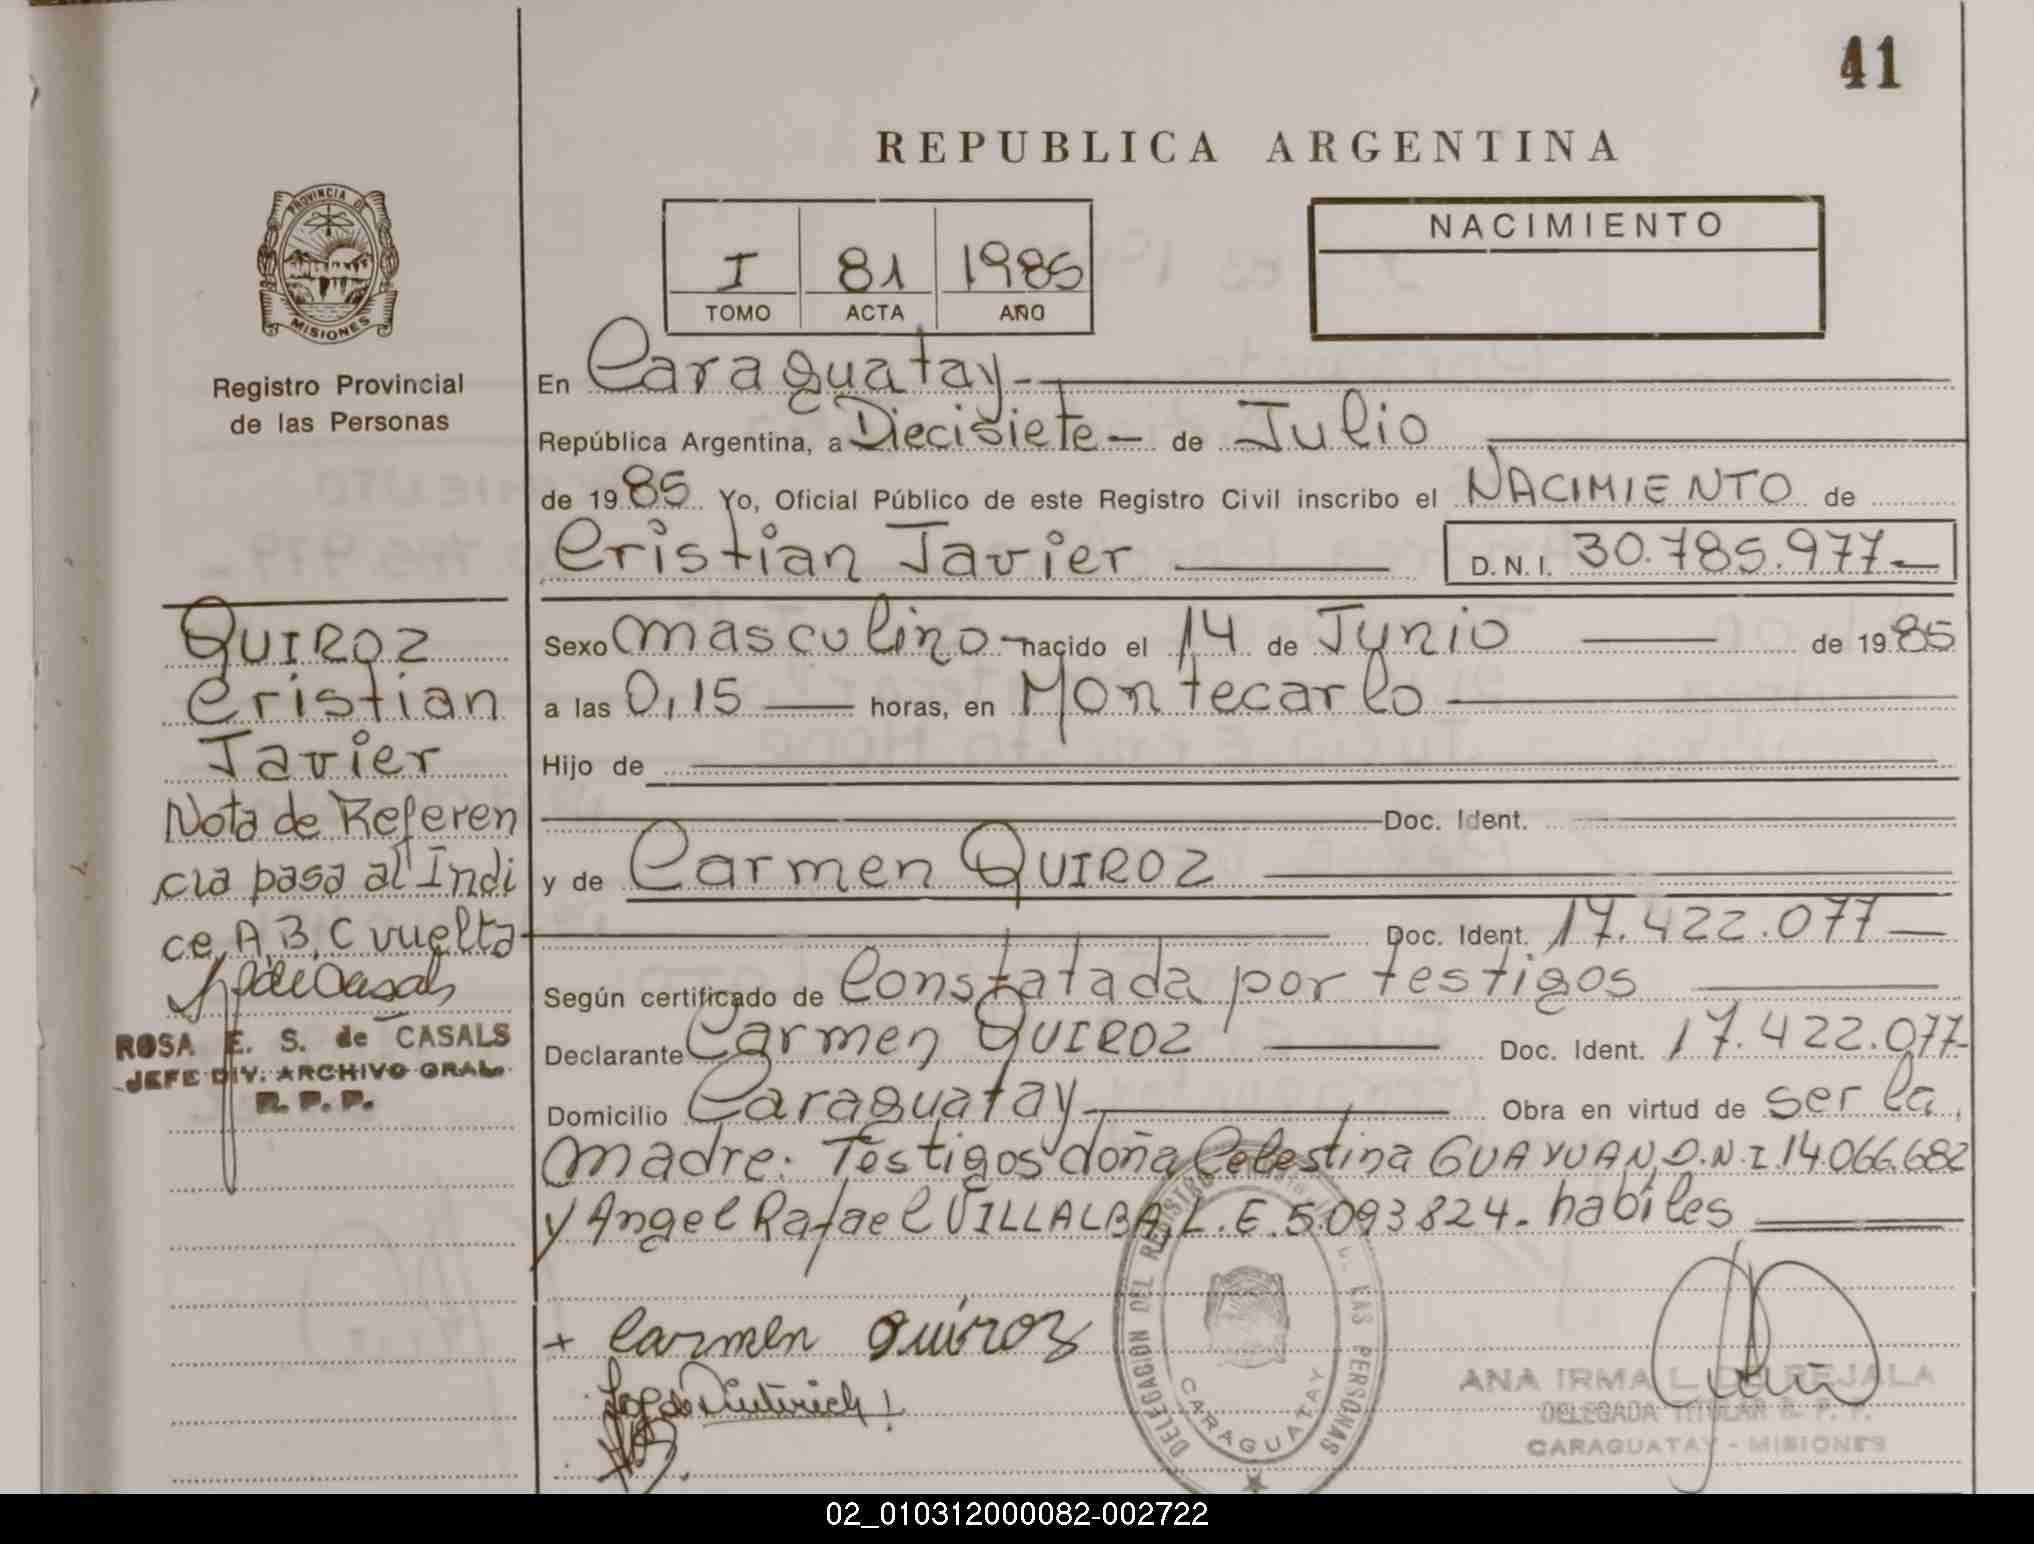 41
REPUBLICA ARGENTINA
PROVINCIA DE
MISIONES
Registro Provincial
de las Personas
I 81 1985
TOMO ACTA AÑO
NACIMIENTO
En Caraguatay
República Argentina, a Diecisiete de Julio
de 1985 Yo, Oficial Público de este Registro Civil inscribo el NACIMIENTO de
Cristian Javier D.N.I. 30.785.977
Sexo masculino nacido el 14 de Junio de 1985
a las 0,15 horas, en Montecarlo
Hijo de
Doc. Ident.
y de Carmen QUIROZ
Doc. Ident. 17.422.077
Según certificado de Constatada por testigos
Declarante Carmen QUIROZ Doc. Ident. 17.422.077
Domicilio Caraguatay Obra en virtud de ser la
madre. Testigos doña Celestina GUAYUAN, D.N.I. 14.066.682
y Angel Rafael VILLALBA, L.E. 5.093.824. habiles
QUIROZ
Cristian
Javier
Nota de Referen
cia pasa al Indi
ce, A, B, C vuelta
ROSA E. S. de CASALS
JEFE DIV. ARCHIVO GRAL.
R. P. P.
+ Carmen Quiroz
DELEGACION DEL REGISTRO LAS PERSONAS
CARAGUATAY
ANA IRMA L. DE BEJALA
DELEGADA TITULAR R. P. P.
CARAGUATAY - MISIONES
02_010312000082-002722